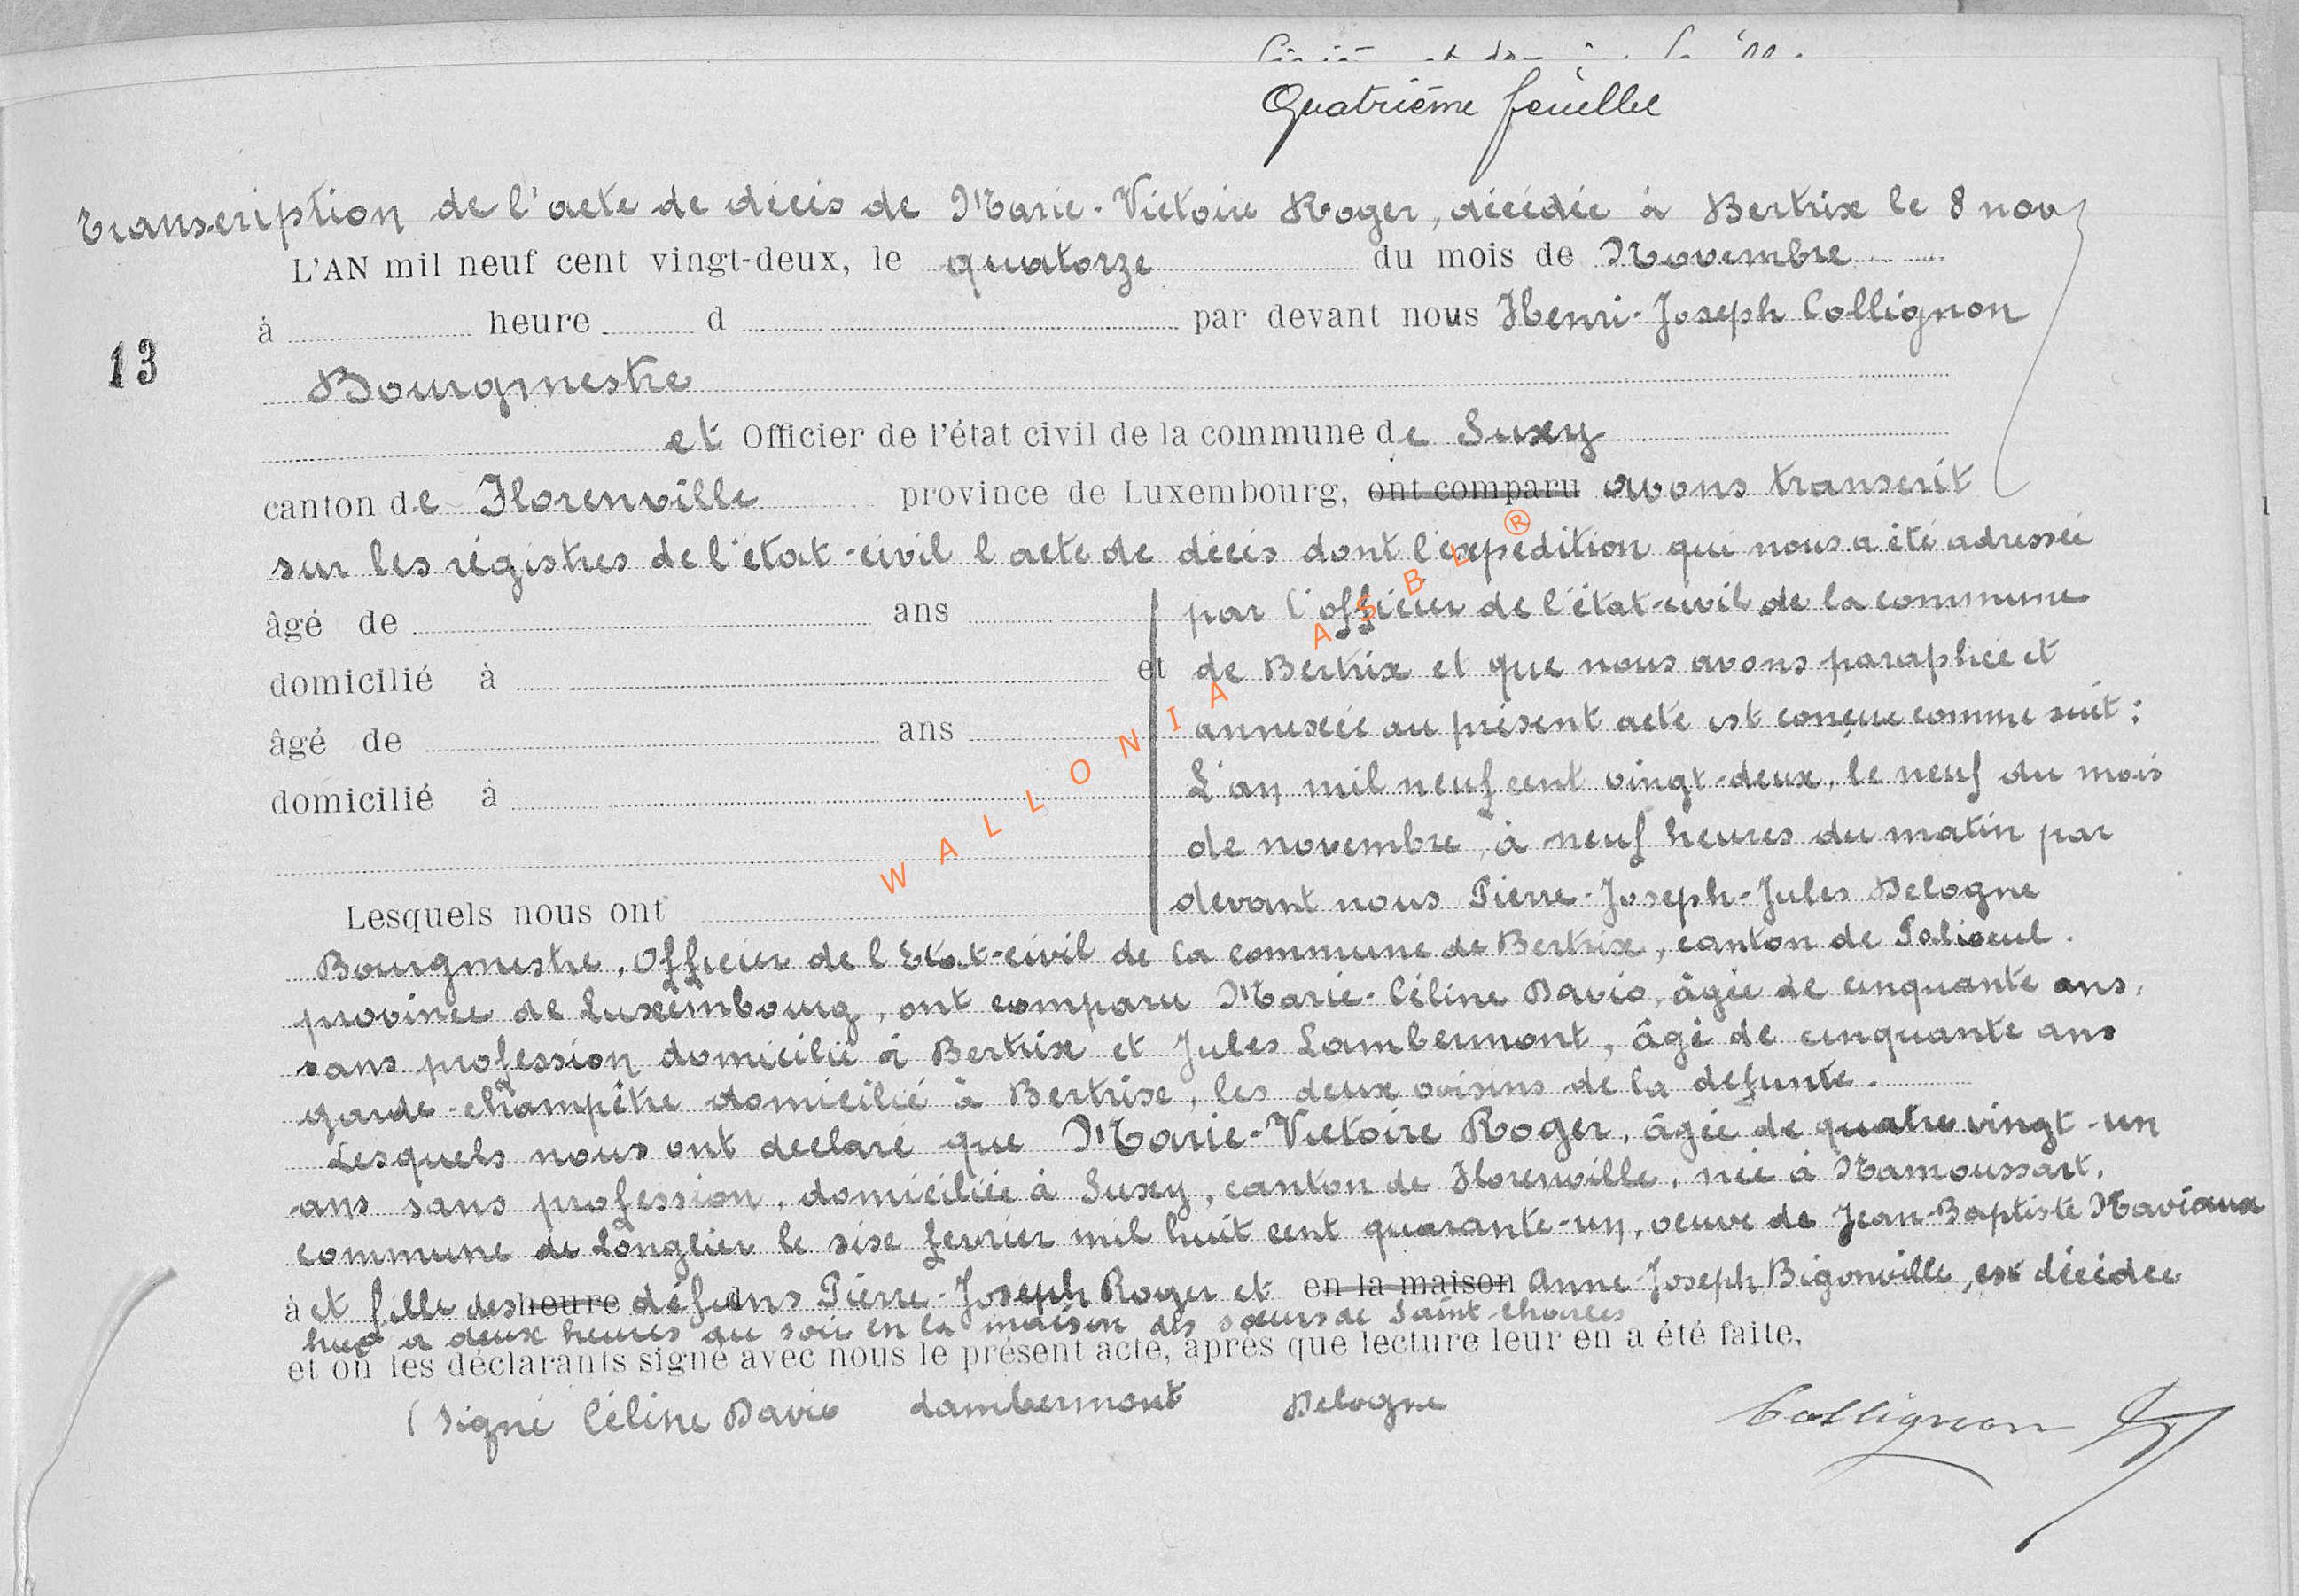 Quatrième feuillet
Transcription de l'acte de décès de Marie-Victoire Roger, décédée à Bertrix le 8 nov
L'AN mil neuf cent vingt-deux, le quatorze du mois de Novembre
à heure d par devant nous Henri-Joseph Collignon
13
Bourgmestre
et Officier de l'état civil de la commune de Suxy
canton de Florenville province de Luxembourg, ont comparu avons transcrit
sur les régistres de l'état-civil l'acte de décès dont l'expédition qui nous a été adressée
âgé de ans par l'officier de l'état-civil de la commune
domicilié à et de Bertrix et que nous avons paraphée et
âgé de ans annexée au présent acte est conçue comme suit :
domicilié à L'an mil neuf cent vingt-deux, le neuf du mois
de novembre, à neuf heures du matin par
Lesquels nous ont devant nous Pierre-Joseph-Jules Delogne
Bourgmestre, Officier de l'Etat-civil de la commune de Bertrix, canton de Paliseul.
province de Luxembourg, ont comparu Marie-Céline Davio, âgée de cinquante ans,
sans profession domicilié à Bertrix et Jules Lambermont, âgé de cinquante ans
garde-champêtre domicilié à Bertrix, les deux voisins de la defunte.
Lesquels nous ont declaré que Marie-Victoire Roger, âgée de quatre vingt-un
ans sans profession, domiciliée à Suxy, canton de Florenville, née à Namoussart,
commune de Longlier le six fevrier mil huit cent quarante-un, veuve de Jean-Baptiste Naviaux
à et fille des heure défunts Pierre-Joseph Roger et en la maison Anne-Joseph Bigonville, est décédée
hier à deux heures du soir en la maison des soeurs de Saint-Charles
et on les déclarants signé avec nous le présent acte, après que lecture leur en a été faite,
(Signé Céline Davio Lambermont Delogne Collignon
WALLONIA ASBL ®